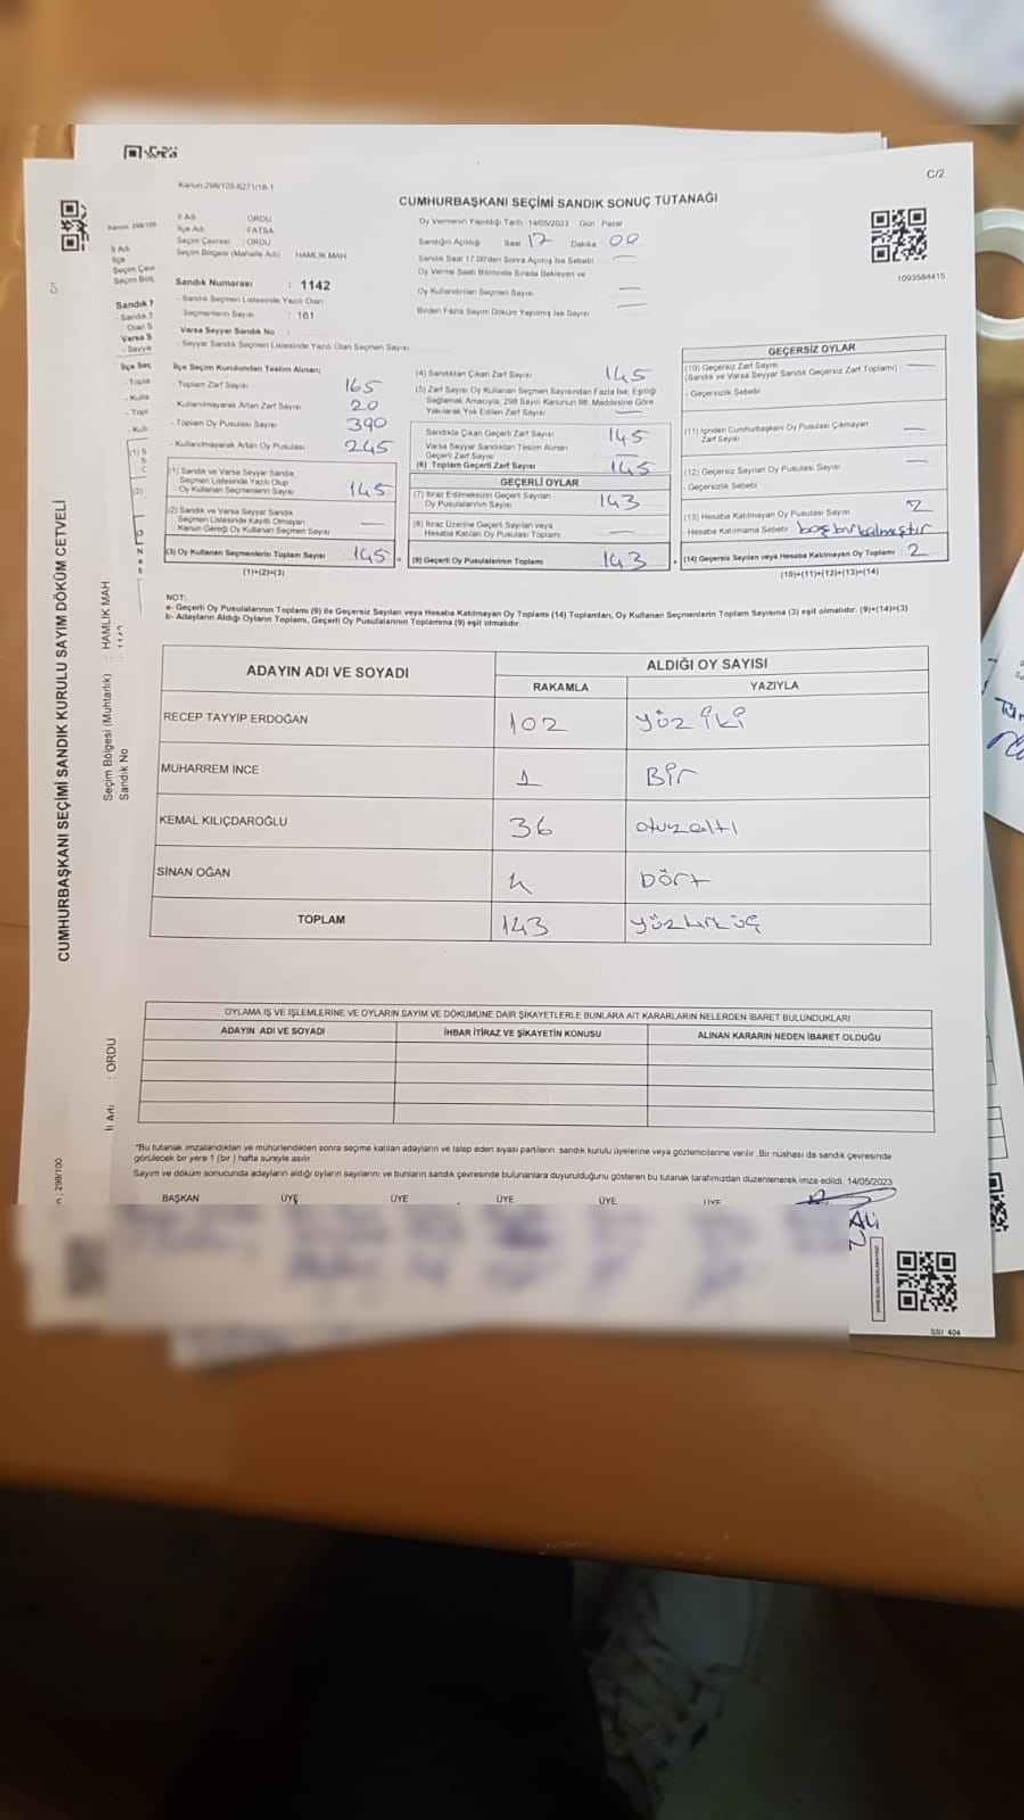 C/2
Kanun:298/129-6271/18-1
CUMHURBAŞKANI SEÇİMİ SANDIK SONUÇ TUTANAĞI
İl Adı ORDU
İlçe Adı FATSA
Seçim Çevresi : ORDU
Seçim Bölgesi (Mahalle Adı) HAMLIK MAH
Sandık Numarası : 1142
- Sandık Seçmen Listesinde Yazılı Olan
Seçmenlerin Sayısı : 161
Varsa Seyyar Sandık No :
- Seyyar Sandık Seçmen Listesinde Yazılı Olan Seçmen Sayısı
Oy Vermenin Yapıldığı Tarih :14/05/2023 Gün : Pazar
Sandığın Açılışı Saat 17 Dakika 00
Sandık Saat 17.00'den Sonra Açılmış İse Sebebi
Oy Verme Saati Bitiminde Sırada Bekleyen ve
Oy Kullandırılan Seçmen Sayısı
Birden Fazla Sayım Döküm Yapılmış İse Sayısı
1093584415
İlçe Seçim Kurulundan Teslim Alınan;
- Toplam Zarf Sayısı 165
- Kullanılmayarak Artan Zarf Sayısı 20
- Toplam Oy Pusulası Sayısı 390
- Kullanılmayarak Artan Oy Pusulası 245
(1) Sandık ve Varsa Seyyar Sandık
Seçmen Listesinde Yazılı Olup
Oy Kullanan Seçmenlerin Sayısı 145
(2) Sandık ve Varsa Seyyar Sandık
Seçmen Listesinde Kayıtlı Olmayan
Kanun Gereği Oy Kullanan Seçmen Sayısı —
(3) Oy Kullanan Seçmenlerin Toplam Sayısı 145
(1)+(2)=(3)
(4) Sandıktan Çıkan Zarf Sayısı 145
(5) Zarf Sayısı Oy Kullanan Seçmen Sayısından Fazla İse, Eşitliği
Sağlamak Amacıyla, 298 Sayılı Kanunun 98. Maddesine Göre
Yakılarak Yok Edilen Zarf Sayısı —
Sandıkta Çıkan Geçerli Zarf Sayısı 145
Varsa Seyyar Sandıktan Teslim Alınan
Geçerli Zarf Sayısı —
(6) Toplam Geçerli Zarf Sayısı 145
GEÇERLİ OYLAR
(7) İtiraz Edilmeksizin Geçerli Sayılan
Oy Pusulalarının Sayısı 143
(8) İtiraz Üzerine Geçerli Sayılan veya
Hesaba Katılan Oy Pusulası Toplamı —
(9) Geçerli Oy Pusulalarının Toplamı 143
GEÇERSİZ OYLAR
(10) Geçersiz Zarf Sayısı
(Sandık ve Varsa Seyyar Sandık Geçersiz Zarf Toplamı) —
- Geçersizlik Sebebi
(11) İçinden Cumhurbaşkanı Oy Pusulası Çıkmayan
Zarf Sayısı —
(12) Geçersiz Sayılan Oy Pusulası Sayısı —
- Geçersizlik Sebebi
(13) Hesaba Katılmayan Oy Pusulası Sayısı 2
Hesaba Katılmama Sebebi
(14) Geçersiz Sayılan veya Hesaba Katılmayan Oy Toplamı 2
(10)+(11)+(12)+(13)=(14)
NOT:
a- Geçerli Oy Pusulalarının Toplamı (9) ile Geçersiz Sayılan veya Hesaba Katılmayan Oy Toplamı (14) Toplamları, Oy Kullanan Seçmenlerin Toplam Sayısına (3) eşit olmalıdır. (9)+(14)=(3)
b- Adayların Aldığı Oyların Toplamı, Geçerli Oy Pusulalarının Toplamına (9) eşit olmalıdır.
ADAYIN ADI VE SOYADI ALDIĞI OY SAYISI
RAKAMLA YAZIYLA
RECEP TAYYİP ERDOĞAN 102 yüz iki
MUHARREM İNCE 1 Bir
KEMAL KILIÇDAROĞLU 36 otuzaltı
SİNAN OĞAN 4 Dört
TOPLAM 143 yüzkırküç
OYLAMA İŞ VE İŞLEMLERİNE VE OYLARIN SAYIM VE DÖKÜMÜNE DAİR ŞİKAYETLERLE BUNLARA AİT KARARLARIN NELERDEN İBARET BULUNDUKLARI
ADAYIN ADI VE SOYADI İHBAR İTİRAZ VE ŞİKAYETİN KONUSU ALINAN KARARIN NEDEN İBARET OLDUĞU
*Bu tutanak imzalandıktan ve mühürlendikten sonra seçime katılan adayların ve talep eden siyasi partilerin sandık kurulu üyelerine veya gözlemcilerine verilir. Bir nüshası da sandık çevresinde
görülecek bir yere 1 (bir ) hafta süreyle asılır.
Sayım ve döküm sonucunda adayların aldığı oyların sayılarını ve bunların sandık çevresinde bulunanlara duyurulduğunu gösteren bu tutanak tarafımızdan düzenlenerek imza edildi. 14/05/2023
BAŞKAN ÜYE ÜYE ÜYE ÜYE ÜYE
ALİ
SSI 404
CUMHURBAŞKANI SEÇİMİ SANDIK KURULU SAYIM DÖKÜM CETVELİ
Seçim Bölgesi (Muhtarlık) : HAMLIK MAH
Sandık No
İl Adı : ORDU